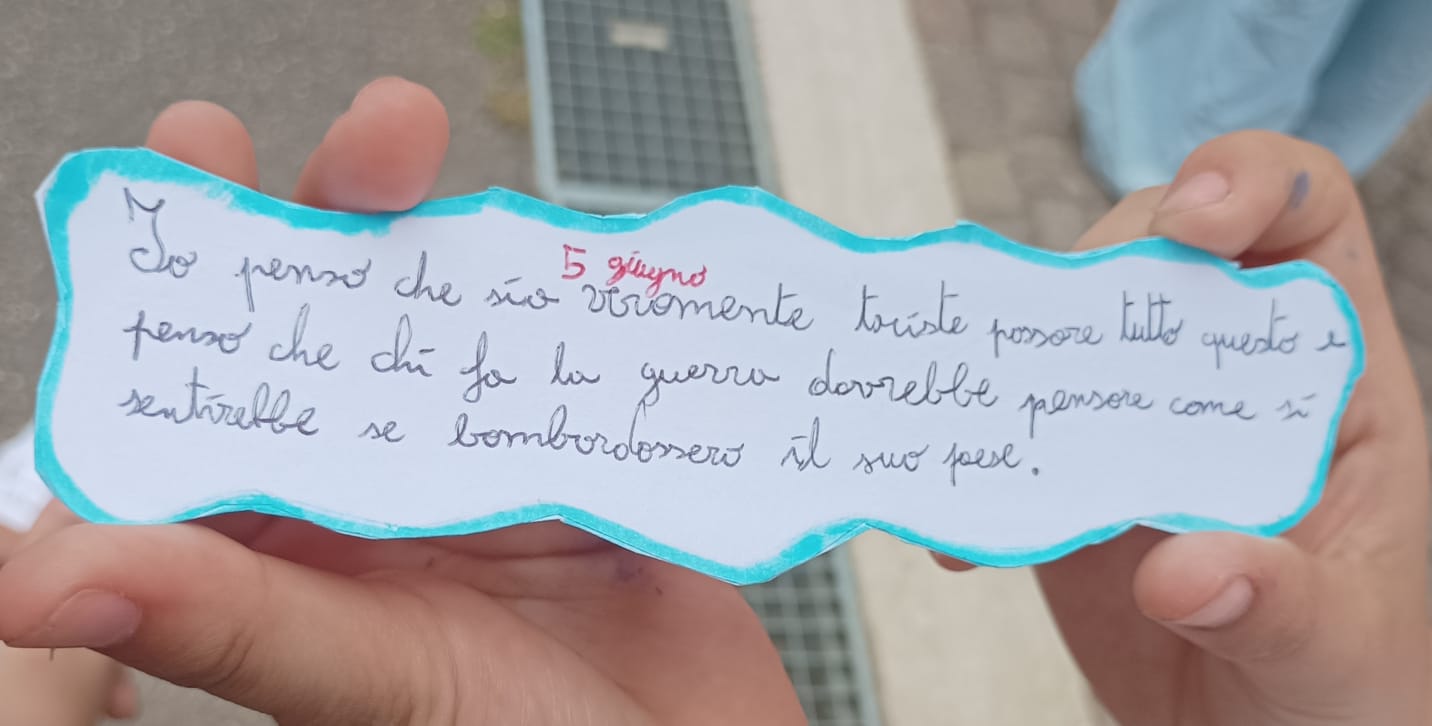 5 giugno
Io penso che sia veramente triste passare tutto questo e
penso che chi fa la guerra dovrebbe pensare come si
sentirebbe se bombardassero il suo paese.